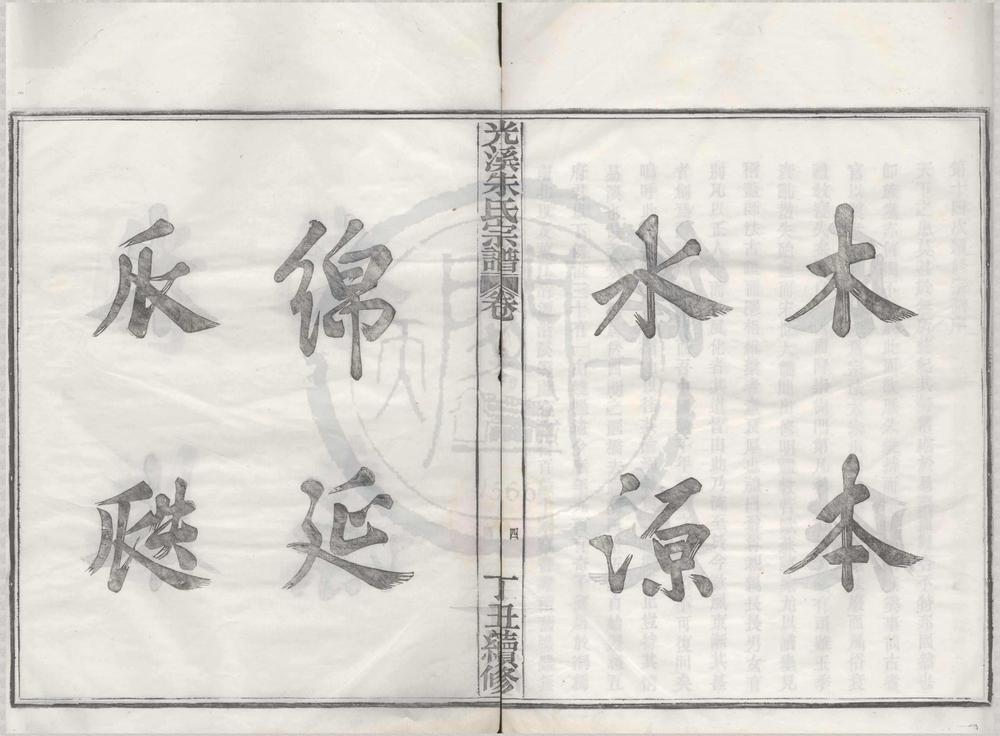 木本
水源
光溪朱氏宗譜 卷
四
丁丑續修
綿延
瓜瓞